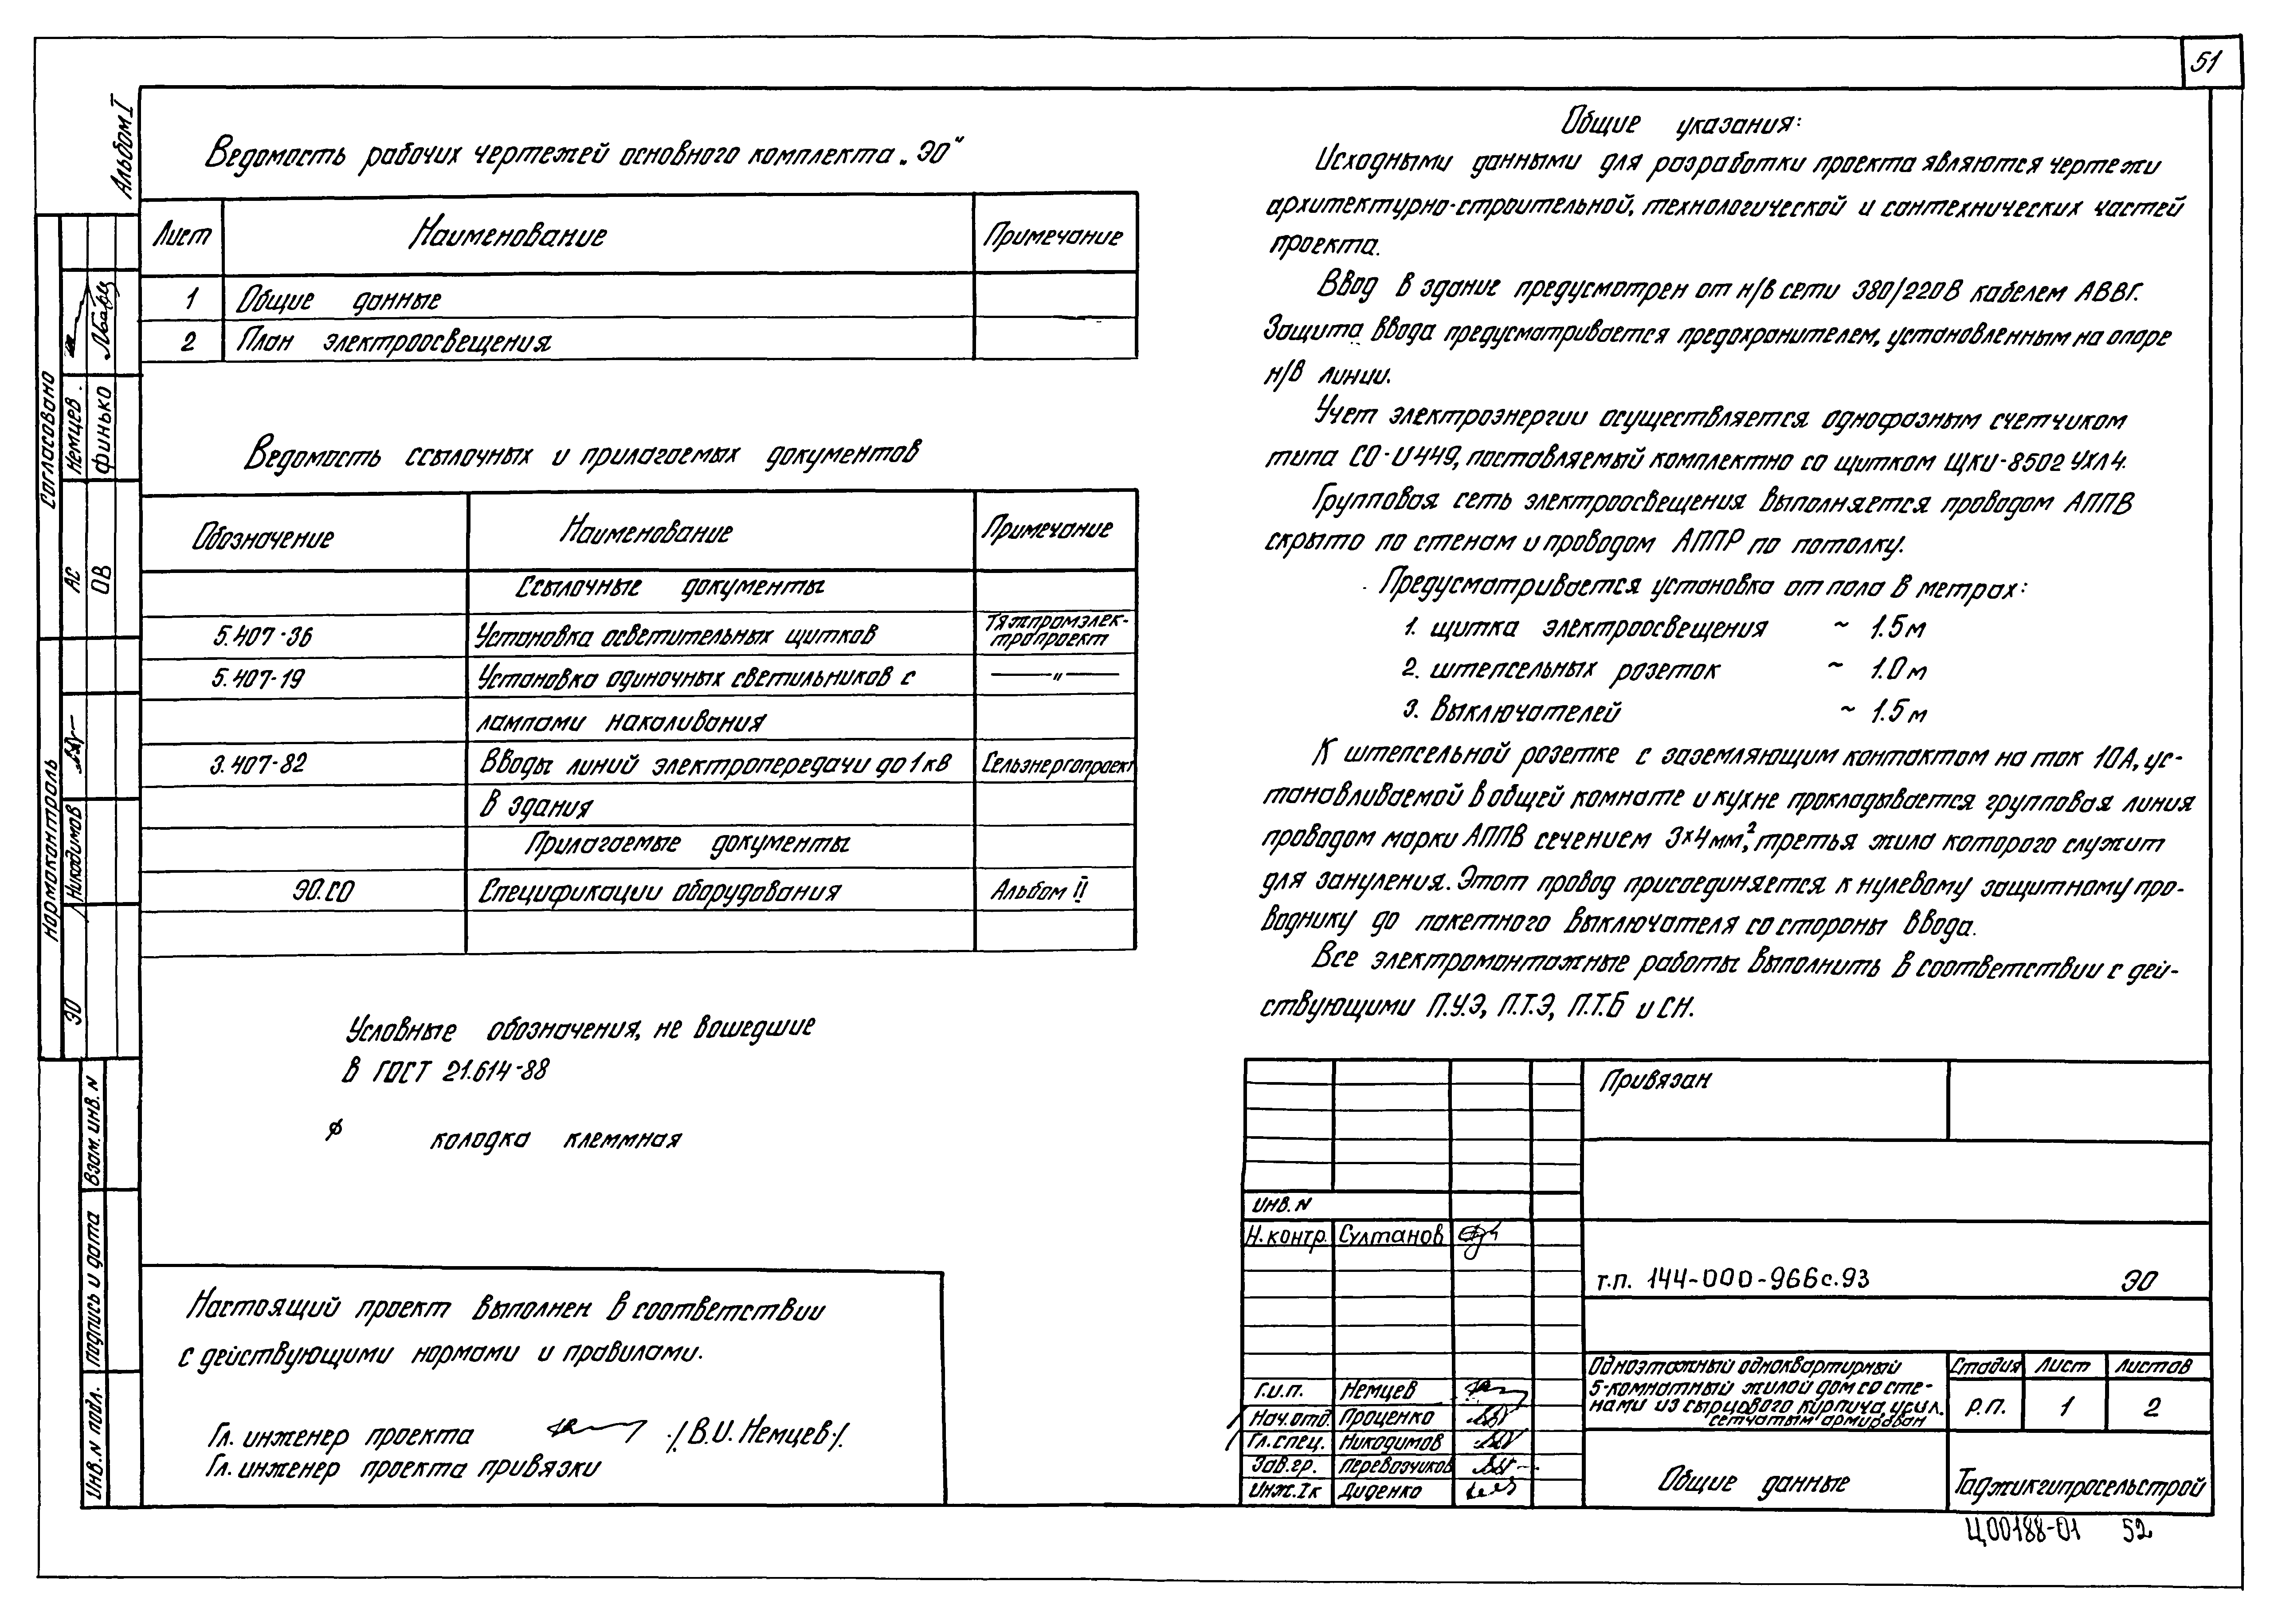 51
Альбом I
Ведомость рабочих чертежей основного комплекта „ЭО“
Лист Наименование Примечание
1 Общие данные
2 План электроосвещения
Ведомость ссылочных и прилагаемых документов
Обозначение Наименование Примечание
Ссылочные документы
5.407-36 Установка осветительных щитков Тяжпромэлек-
тропроект
5.407-19 Установка одиночных светильников с —〃—
лампами накаливания
3.407-82 Вводы линий электропередачи до 1кв Сельэнергопроект
в здания
Прилагаемые документы
ЭО.СО Спецификации оборудования Альбом II
Условные обозначения, не вошедшие
в ГОСТ 21.614-88
колодка клеммная
Настоящий проект выполнен в соответствии
с действующими нормами и правилами.
Гл. инженер проекта /В.И. Немцев/.
Гл. инженер проекта привязки
Общие указания:
Исходными данными для разработки проекта являются чертежи
архитектурно-строительной, технологической и сантехнических частей
проекта.
Ввод в здание предусмотрен от н/в сети 380/220В кабелем АВВГ.
Защита ввода предусматривается предохранителем, установленным на опоре
н/в линии.
Учет электроэнергии осуществляется однофазным счетчиком
типа СО-И449, поставляемый комплектно со щитком ЩКИ-8502 УХЛ4.
Групповая сеть электроосвещения выполняется проводом АППВ
скрыто по стенам и проводом АППР по потолку.
Предусматривается установка от пола в метрах:
1. щитка электроосвещения ~ 1.5м
2. штепсельных розеток ~ 1.0м
3. Выключателей ~ 1.5м
К штепсельной розетке с заземляющим контактом на ток 10А, ус-
танавливаемой в общей комнате и кухне прокладывается групповая линия
проводом марки АППВ сечением 3×4мм², третья жила которого служит
для зануления. Этот провод присоединяется к нулевому защитному про-
воднику до пакетного выключателя со стороны ввода.
Все электромонтажные работы выполнить в соответствии с дей-
ствующими П.У.Э, П.Т.Э, П.Т.Б и СН.
Привязан
Инв. N
Н.контр. Султанов
т.п. 144-000-966с.93 ЭО
Г.и.п. Немцев
Нач.отд. Проценко
Гл.спец. Никодимов
Зав.гр. Перевозчиков
Инж.Iк Диденко
Одноэтажный одноквартирный
5-комнатный жилой дом со сте-
нами из сырцового кирпича, усил.
сетчатым армирован
Стадия Лист Листов
Р.П. 1 2
Общие данные
Таджикгипросельстрой
Ц00188-01 52
Согласовано
Немцев
Финько
АС
ОВ
Нормоконтроль
Никодимов
ЭО
Взам. инв. N
Подпись и дата
Инв. N подл.